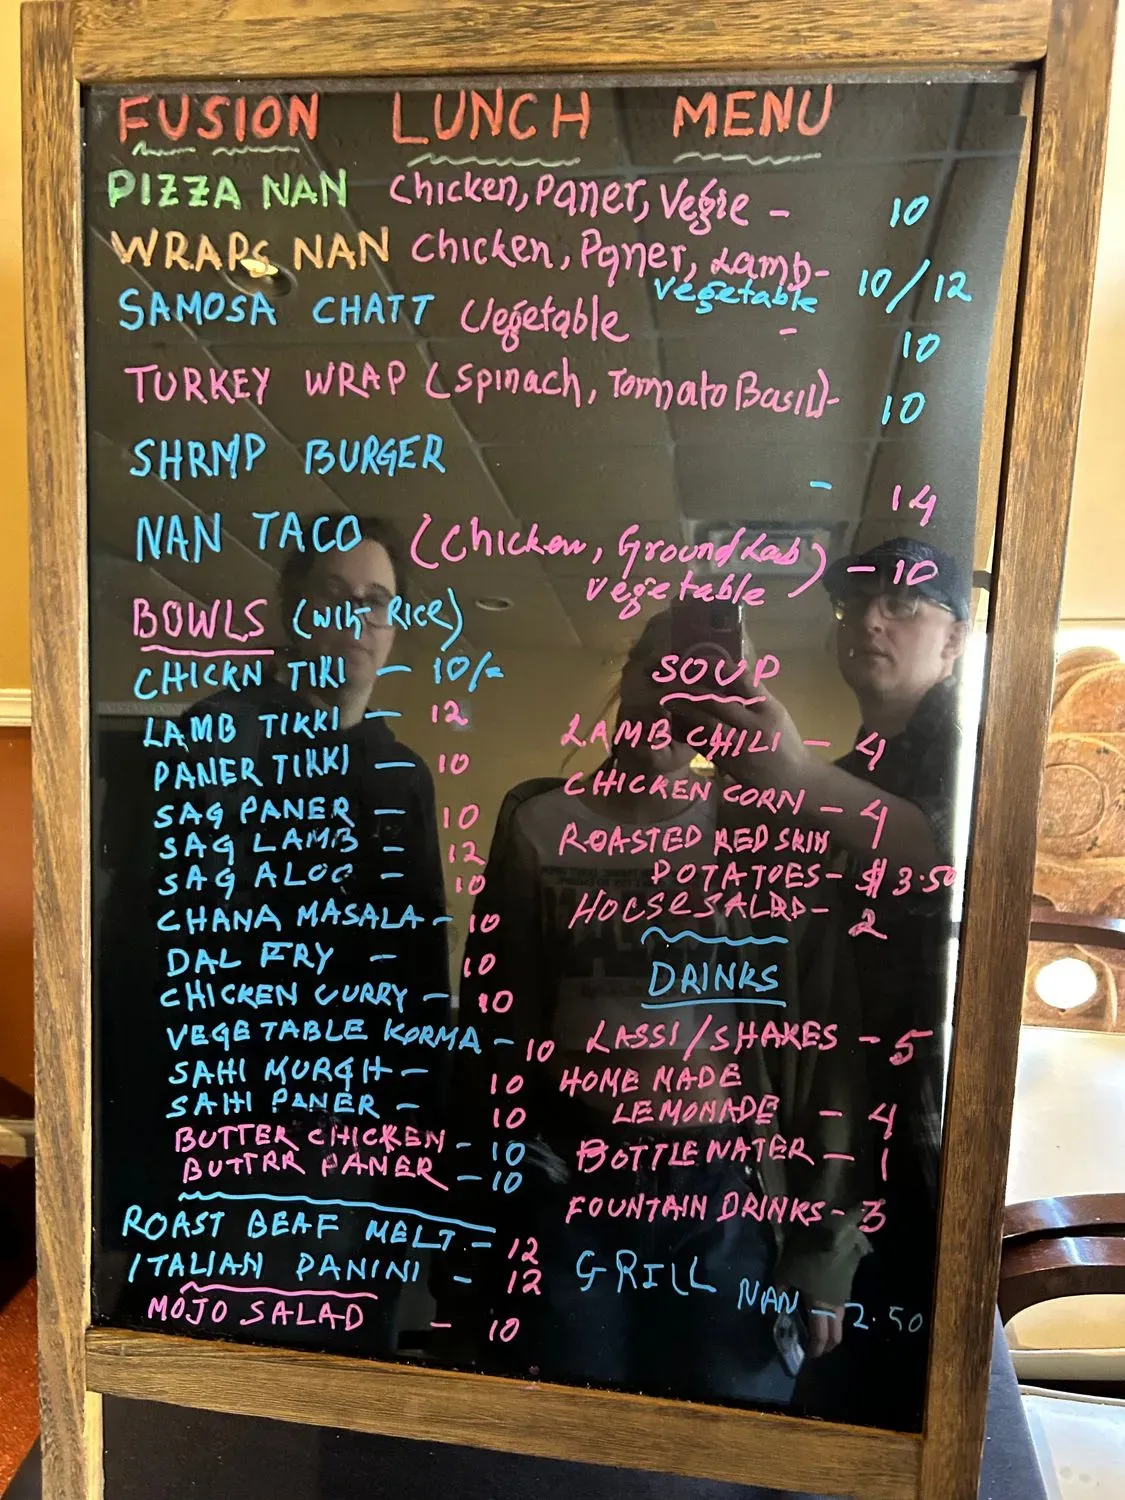 FUSION LUNCH MENU
PIZZA NAN Chicken, Paner, Vegie - 10
WRAPS NAN Chicken, Paner, Lamb- 10/12
vegetable
SAMOSA CHATT Vegetable - 10
TURKEY WRAP (Spinach, Tommato Basil)- 10
SHRMP BURGER - 14
NAN TACO (Chicken, Ground Lab) - 10
vegetable
BOWLS (with RICE)
CHICKN TIKI - 10/=
LAMB TIKKI - 12
PANER TIKKI - 10
SAG PANER - 10
SAG LAMB - 12
SAG ALOO - 10
CHANA MASALA - 10
DAL FRY - 10
CHICKEN CURRY - 10
VEGETABLE KORMA - 10
SAHI MURGH - 10
SAHI PANER - 10
BUTTER CHICKEN - 10
BUTTRR PANER - 10
ROAST BEAF MELT. - 12
ITALIAN PANINI - 12
MOJO SALAD - 10
SOUP
LAMB CHILI - 4
CHICKEN CORN - 4
ROASTED RED SKIN
POTATOES - $3.50
HOUSE SALAD - 2
DRINKS
LASSI/SHAKES - 5
HOME MADE
LEMONADE - 4
BOTTLE WATER - 1
FOUNTAIN DRINKS - 3
GRILL NAN - 2.50